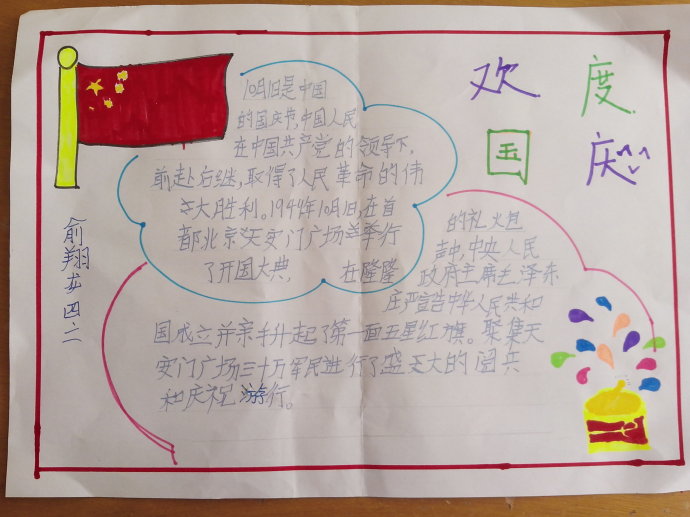 欢度
国庆
10月1日是中国
的国庆节,中国人民
在中国共产党的领导下,
前赴后继,取得了人民革命的伟
大胜利。1949年10月1日,在首
都北京天安门广场举行
了开国大典, 在隆隆
的礼火包
声中,中央人民
政府主席毛泽东
庄严宣告中华人民共和
国成立并亲手升起了第一面五星红旗。聚集天
安门广场三十万军民进行了盛大的阅兵
和庆祝游行。
俞翔龙四二